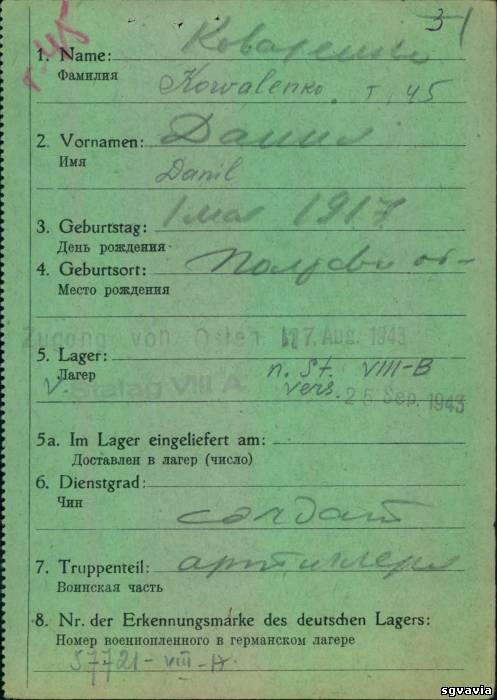 г. 45
31
1. Name: Коваленко
Фамилия
Kowalenko. т. 45
2. Vornamen: Данил
Имя
Danil
3. Geburtstag: 1 мая 1917
День рождения
4. Geburtsort: Полтави об-
Место рождения
Zugang von Osten 17. Aug. 1943
5. Lager: n. St. VIII-B
Лагер
v. Stalag VIII A vers. 25 Sep. 1943
5a. Im Lager eingeliefert am:
Доставлен в лагер (число)
6. Dienstgrad:
Чин
солдат
7. Truppenteil: артиллерия
Воинская часть
8. Nr. der Erkennungsmarke des deutschen Lagers:
Номер военнопленного в германском лагере
57721-VIII-A.
sgvavia